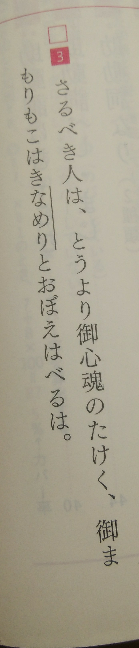 3 さるべき人は、とうより御心魂のたけく、御ま
もりもこはきなめりとおぼえはべるは。